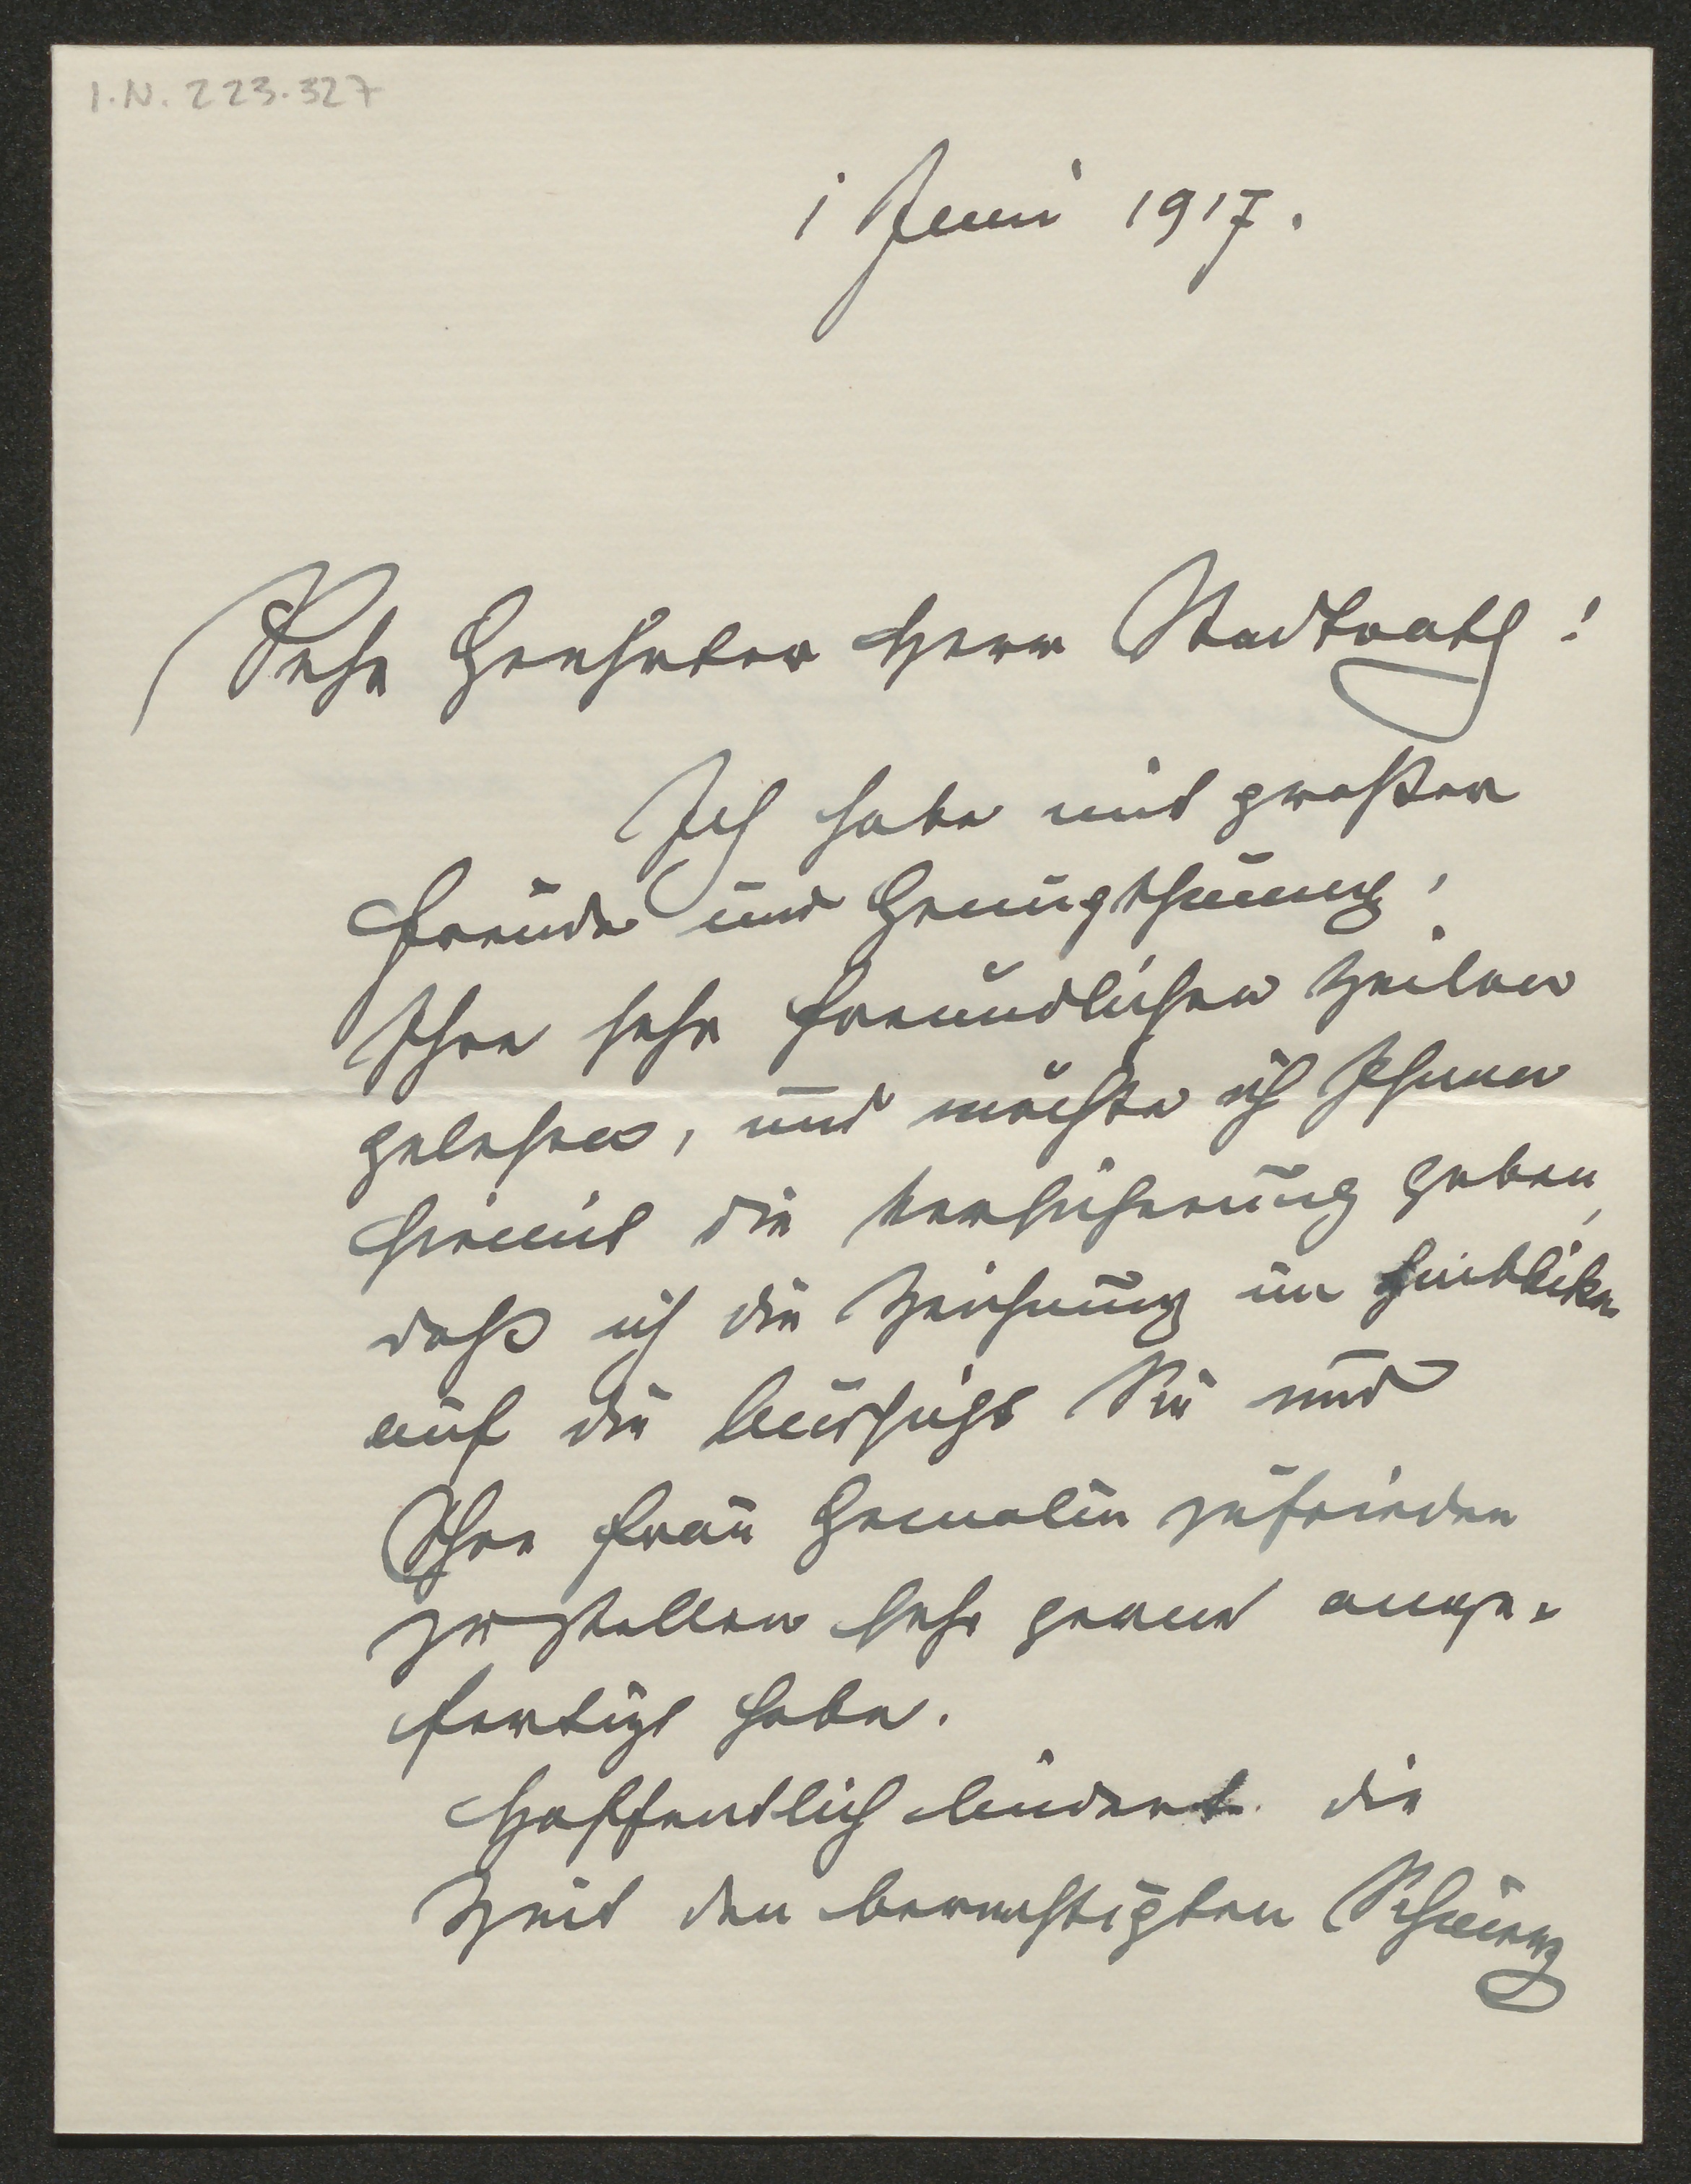 I.N. 223.327
1 Juni 1917.
Sehr Geehrter Herr Stadtrath!
Ich habe mit großer
Freude und Genugthuung,
Ihre sehr freundlichen Zeilen
gelesen, und möchte ich Ihnen
hiemit die Versicherung geben,
daß ich die Zeichnung im Hinblike
auf die Absicht Sie und
Ihre Frau Gemalin zufrieden
zu stellen sehr gerne ange-
fertigt habe.
Hoffentlich lindert die
Zeit den berechtigten Schmerz